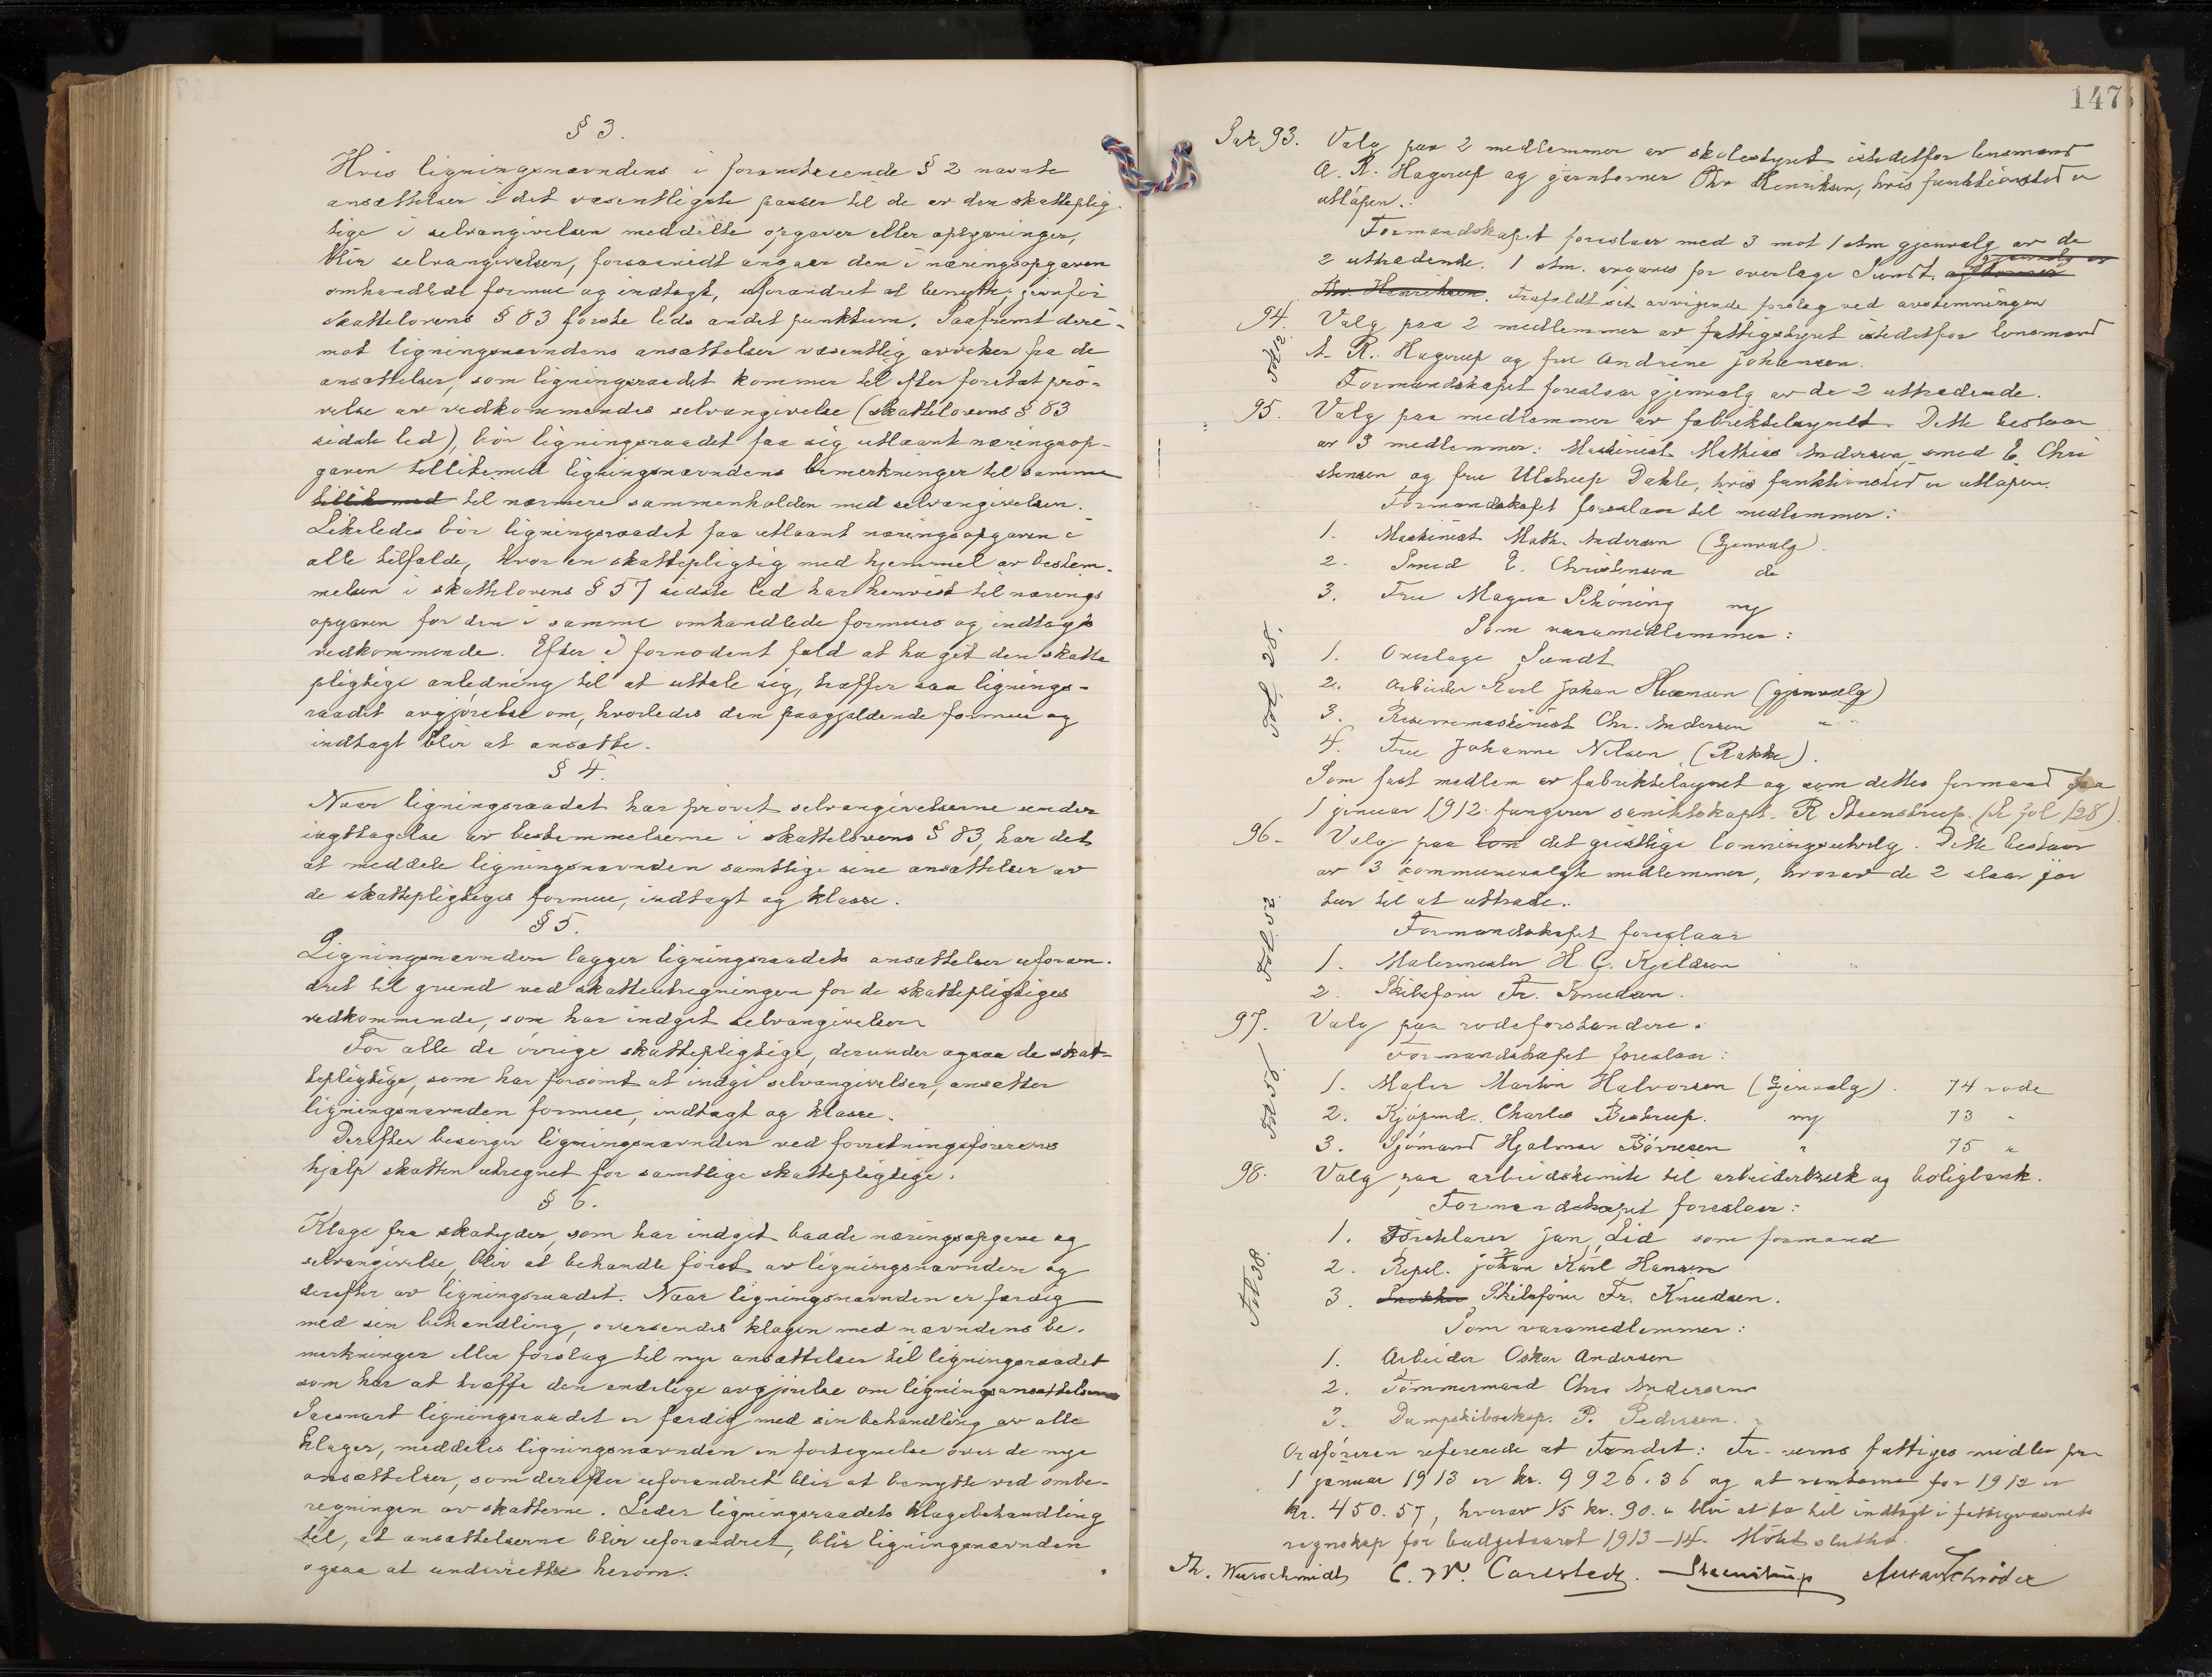 § 3.
Hvis ligningsnævndens i foranstaaende § 2 nævnte
ansættelser i det væsentligste passer til de av den skatteplig-
tige i selvangivelsen meddelte opgaver eller oplysninger,
blir selvangivelsen, forsaavidt angaar den i næringsopgaven
omhandlede formue og indtægt, uforandret at benytte, jevnfør
skattelovens § 83 første leds andet punktum. Saafremt deri-
mot ligningsnævndens ansættelser væsentlig avviker fra de
ansættelser, som ligningsraadet kommer til efter foretat prø-
velse av vedkommendes selvangivelse (skattelovens § 83
sidste led), bør ligningsraadet faa sig utlaant næringsop-
gaven tillikemed ligningsnævndens bemerkninger til samme
tillikemed til nærmere sammenholden med selvangivelsen.
Likeledes bør ligningsraadet faa utlaant næringsopgaven i
alle tilfælde, hvor en skattepligtig med hjemmel av bestem-
melsen i skattelovens § 57 sidste led har henvist til nærings
opgaven for den i samme omhandlede formues og indtægts
vedkommende. Efter i fornødent fald at ha git den skatte
pligtige anledning til at uttale sig, træffer saa lignings-
raadet avgjørelse om, hvorledes den paagjældende formue og
indtægt blir at ansætte.
§ 4.
Naar ligningsraadet har prøvet selvangivelserne under
iagttagelse av bestemmelserne i skattelovens § 83, har det
at meddele ligningsnævnden samtlige sine ansættelser av
de skattepligtiges formue, indtægt og klasse.
§ 5.
Ligningsnævnden lægger ligningsraadets ansættelser uforan-
dret til grund ved skatteutregningen for de skattepligtiges
vedkommende, som har indgit selvangivelser
For alle de øvrige skattepligtige, derunder ogsaa de skat-
tepligtige, som har forsømt at indgi selvangivelser, ansætter
ligningsnævnden formue, indtægt og klasse.
Derefter besørger ligningsnævnden ved forretningsførerens
hjælp skatten utregnet for samtlige skattepligtige.
§ 6.
Klage fra skatyder, som har indgit baade næringsopgave og
selvangivelse, blir at behandle først av ligningsnævnden og
derefter av ligningsraadet. Naar ligningsnævnden er færdig
med sin behandling, oversendes klagen med nævndens be-
merkninger eller forslag til nye ansættelser til ligningsraadet
som har at træffe den endelige avgjørelse om ligningsansættelsen
Saasnart ligningsraadet er færdig med sin behandling av alle
klager, meddeles ligningsnævnden en fortegnelse over de nye
ansættelser, som derefter uforandret blir at benytte ved ombe-
regningen av skatterne. Leder ligningsraadets klagebehandling
til, at ansættelserne blir uforandret, blir ligningsnævnden
ogsaa at underrette herom.
147
Sak 93. Valg paa 2 medlemmer av skolestyret istedetfor lensmand
A. R. Hagerup og gjørtlerner Thv Henriksen, hvis funktionstid er
utløpen.
Formandskapet foreslaar med 3 mot 1 stm gjenvalg av de
2 uttrædende. 1 stm. avgaves for overlæge Sundt gjenvalg av
Thv. Henriksen. Frafaldt sit avvigende forslag ved avstemningen
94. Valg paa 2 medlemmer av fattigstyret istedetfor lensmand
A. R. Hagerup og fru Andrine Johansen.
Formandskapet foreslaar gjenvalg av de 2 uttrædende.
95. Valg paa medlemmer av fabriktilsynet. Dette bestaar
av 3 medlemmer: Maskinist Mathias Andersen, smed E. Chri
stensen og fru Ulstrup Dahle, hvis funktionstid er utløpen.
Formandskapet foreslaar til medlemmer:
1. Maskinist Math. Andersen (Gjenvalg).
2. Smed E. Christensen do
3. Fru Magna Schøning ny
Som varamedlemmer:
Fol 28.
1. Overlæge Sundt
2. Arbeider Karl Johan Hansen (gjenvalg)
3. Reservemaskinist Chr. Andersen "
4. Fru Johanne Nilsen (Rakke).
Som fast medlem av fabriktilsynet og som dettes formand fra
1 januar 1912 fungerer sanitetskapt. R Steenstrup. (se fol 128).
96. Valg paa løn det geistlige lønningsutvalg. Dette bestaar
av 3 kommunevalgte medlemmer, hvorav de 2 staar for
tur til at uttræde.
Formandskapet foreslaar
1. Malermester H. G. Kjeldsen
2. Skibsfører Fr. Knudsen.
97. Valg paa rodeforstandere.
Formandskapet foreslaar:
1. Maler Martin Halvorsen (Gjenvalg). 74 rode
2. Kjøpmd. Charles Bestrup. ny 73 "
3. Sjømand Hjalmar Børresen " 75 "
98. Valg paa arbeidskomite til arbeiderbruk og boligbank.
Formandskapet foreslaar:
Fol 38.
1. Førstelærer Jan Lid som formand
2. Repsl. Johan Karl Hansen
3. Snekker Skibsfører Fr. Knudsen.
Som varamedlemmer:
1. Arbeider Oskar Andersen
2. Tømmermand Chrs Andersen
3. Dampskibseksp. P. Pedersen.
Ordføreren refererede at Fondet: Fr-verns fattiges midler pr
1 januar 1913 er kr. 9926.36 og at renterne for 1912 er
kr. 450.57, hvorav 1/5 kr. 90. " blir at ta til indtægt i fattigvæsenets
regnskap for budgetaaret 1913-14. Møtet sluttet.
Th. Wurschmidt C. W. Carlstedt. Steenstrup Schrøder